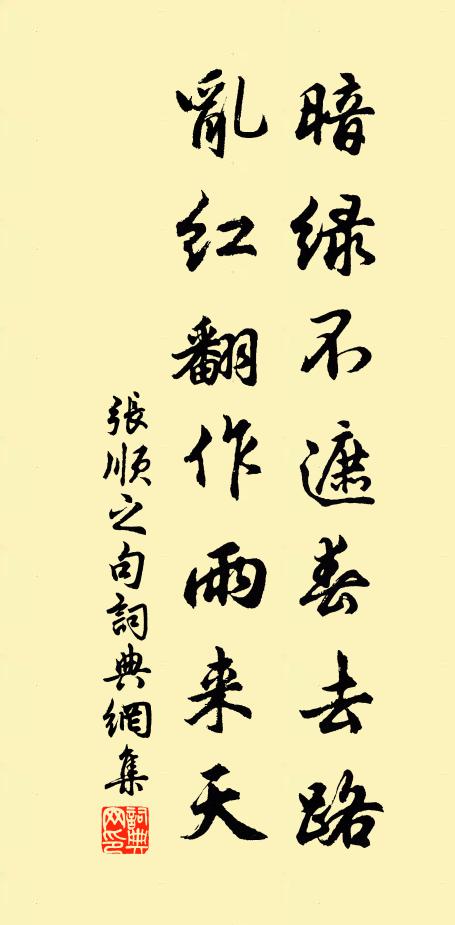 暗绿不遮春去路
亂红翻作雨来天
張順之句詞典網集
詞典网印